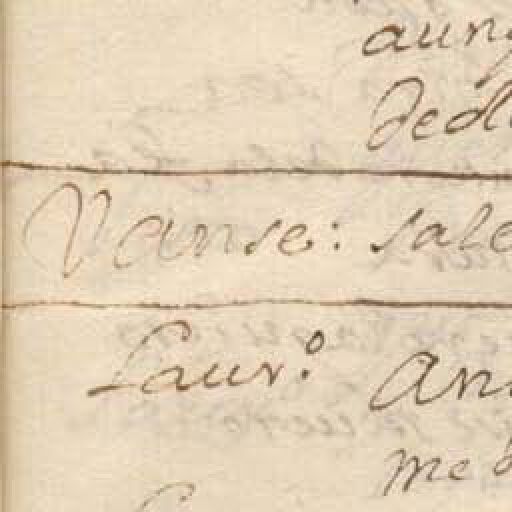 aunq
dedi
Vanse: sale
Laur.º An
me d